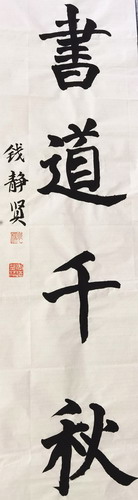 書道千秋
钱静贤